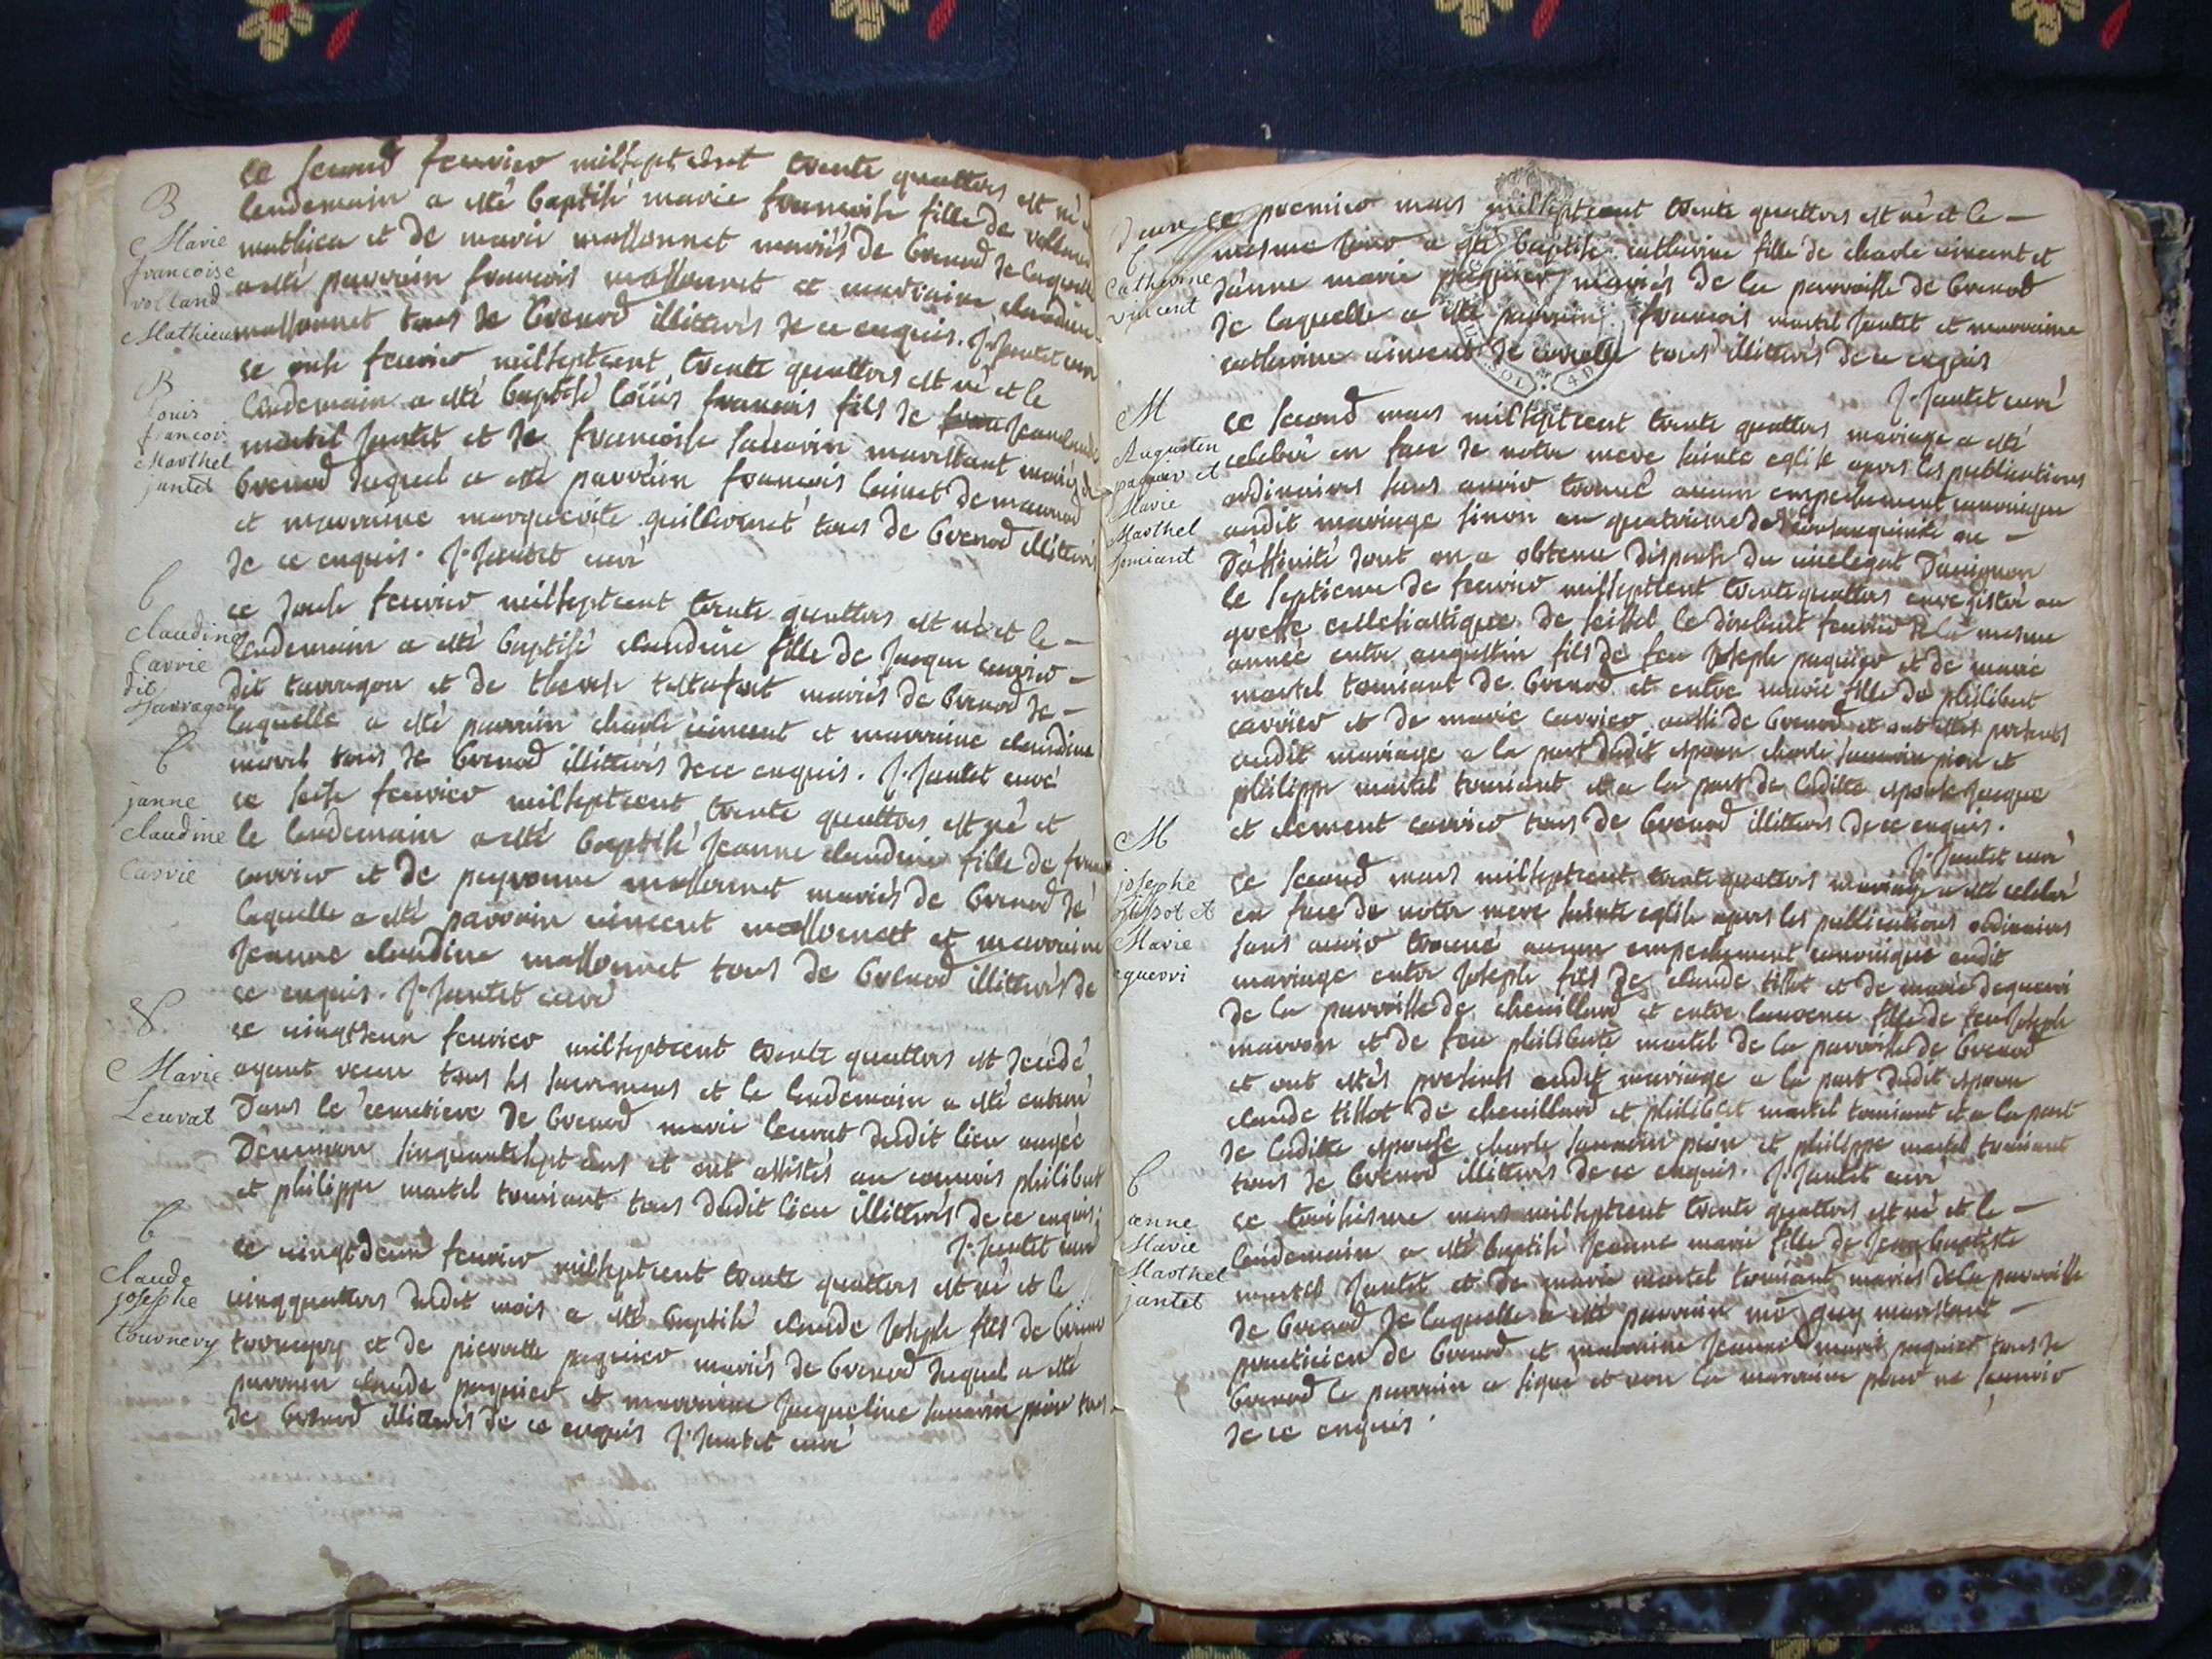 B
Marie
francoise
volland
Mathieu
ce second feuvrier milsept cent trente quattres est né et
lendemain a esté baptisé marie francoise fille de volland
mathieu et de marie massonnet mariés de Brenod de laquelle
a esté parrain francois massonnet et marraine claudine
massonnet tous de Brenod illitterés de ce enquis. J. Jantet curé
B
Louis
francois
Marthel
jantet
ce onse feuvrier milseptcent trente quattres est né et le
lendemain a esté baptisé Loüis francois fils de Jeanclaude
martel Jantet et de francoise sauarin marestant mariés de
Brenod duquel a esté parrain francois
et marraine marguerite guillermet tous de Brenod illitterés
de ce enquis. J. Jantet curé
b
claudine
Carrie
dit
tarragon
ce douse feuvrier milseptcent trente quattres est né et le –
lendemain a esté baptisé claudine fille de Jacque carrier –
dit tarragon et de therese mariés de Brenod de –
laquelle a esté parrain charle vincent et marraine claudine
morel tous de Brenod illitterés de ce enquis. J. Jantet curé
b
janne
claudine
Carrie
ce seise feuvrier milseptcent trente quattres est né et
le lendemain a esté baptisé Jeanne claudine fille de
carrier et de peyronne massonnet mariés de Brenod de
laquelle a esté parrain vincent massonnet et marraine
Jeanne claudine massonnet tous de Brenod illitterés de
ce enquis. J. Jantet curé
S.
Marie
Leuvrat
ce vingtseun feuvrier milseptcent trente quattres est decédé
ayant receu tous les sacremens et le lendemain a esté enterré
dans le cemetiere de Brenod marie leuvrat dudit lieu aagée
denuiron sinquantesept ans et ont assistés au convois philibert
et philippe martel tomiant tous dudit lieu illitterés de ce enquis.
J. Jantet curé
b
Claude
josephe
tournery
ce vingtdeux feuvrier milseptcent trente quattres est né et le
vingquattres dudit mois a esté baptisé claude Joseph fils de
et de pierrette paquier mariés de Brenod duquel a esté
parrain claude paquier et marraine Jacqueline sauarin pion tous
de Brenod illitterés de ce enquis J. Jantet curé
b
Catherine
vincent
ce premier mars milseptcent trente quattres est né et le –
mesme jour a esté baptisé catherine fille de charle vincent et
Janne marie paquier mariés de la parroisse de Brenod
de laquelle a esté parrain francois martel Jantet et marraine
catherine vincent de tous illitterés de ce enquis
J. Jantet curé
M
Augusten
paquier et
Marie
Marthel
tomiant
ce second mars milseptcent trente quattres mariage a esté
celebré en face de notre mere sainte eglise apres les publications
ordinaires sans auoir trouué aucun empechement canonique
audit mariage sinon au quatrieme de consanguinité ou –
daffinité dont on a obtenu dispense du vicelegat Dauignon
le septieme de feuvrier milseptcent trentequattres enregistré au
greffe ecclesiastique de seissel le dixhuit feuvrier de la mesme
année entre augustin fils de feu Joseph paquier et de marie
martel tomiant de Brenod et entre marie fille de philibert
carrier et de marie carrier aussi de Brenod et ont estés presents
audit mariage a la part dudit epoux charle sauarin pion et
philippe martel tomiant et a la part de laditte epouse Jacque
et clement carrier tous de Brenod illitterés de ce enquis.
J. Jantet curé
M
josephe
tissot et
Marie
equerri
ce second mars milseptcent trente quattres mariage a esté celebré
en face de notre mere sainte eglise apres les publications ordinaires
sans auoir trouué aucun empechement canonique audit
mariage entre Joseph fils de claude tissot et de marie dequerri
de la parroisse de cheuillard et entre laurence fille de feu Joseph
marron et de feu philiberte martel de la parroisse de Brenod
et ont estés presents audit mariage a la part dudit epoux
claude tissot de cheuillard et philibert martel tomiant et a la part
de laditte epouse charle sauarin pion et philippe martel tomiant
tous de Brenod illitterés de ce enquis. J. Jantet curé
b
janne
Marie
Marthel
jantet
ce troisiesme mars milseptcent trente quattres est né et le –
lendemain a esté baptisé Jeanne marie fille de Jean baptiste
martel Jantet et de marie martel tomiant mariés de la parroisse
de Brenod de laquelle a esté parrain me guy marestant –
practicien de Brenod et marraine Jeanne marie paquier tous de
Brenod le parrain a signé et non la marraine pour ne scauoir
de ce enquis.
SOL 4 D